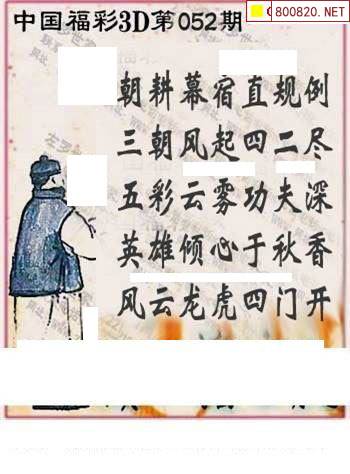 800820.NET
中国福彩3D第052期
朝耕幕宿直规例
三朝风起四二尽
五彩云雾功夫深
英雄倾心于秋香
风云龙虎四门开